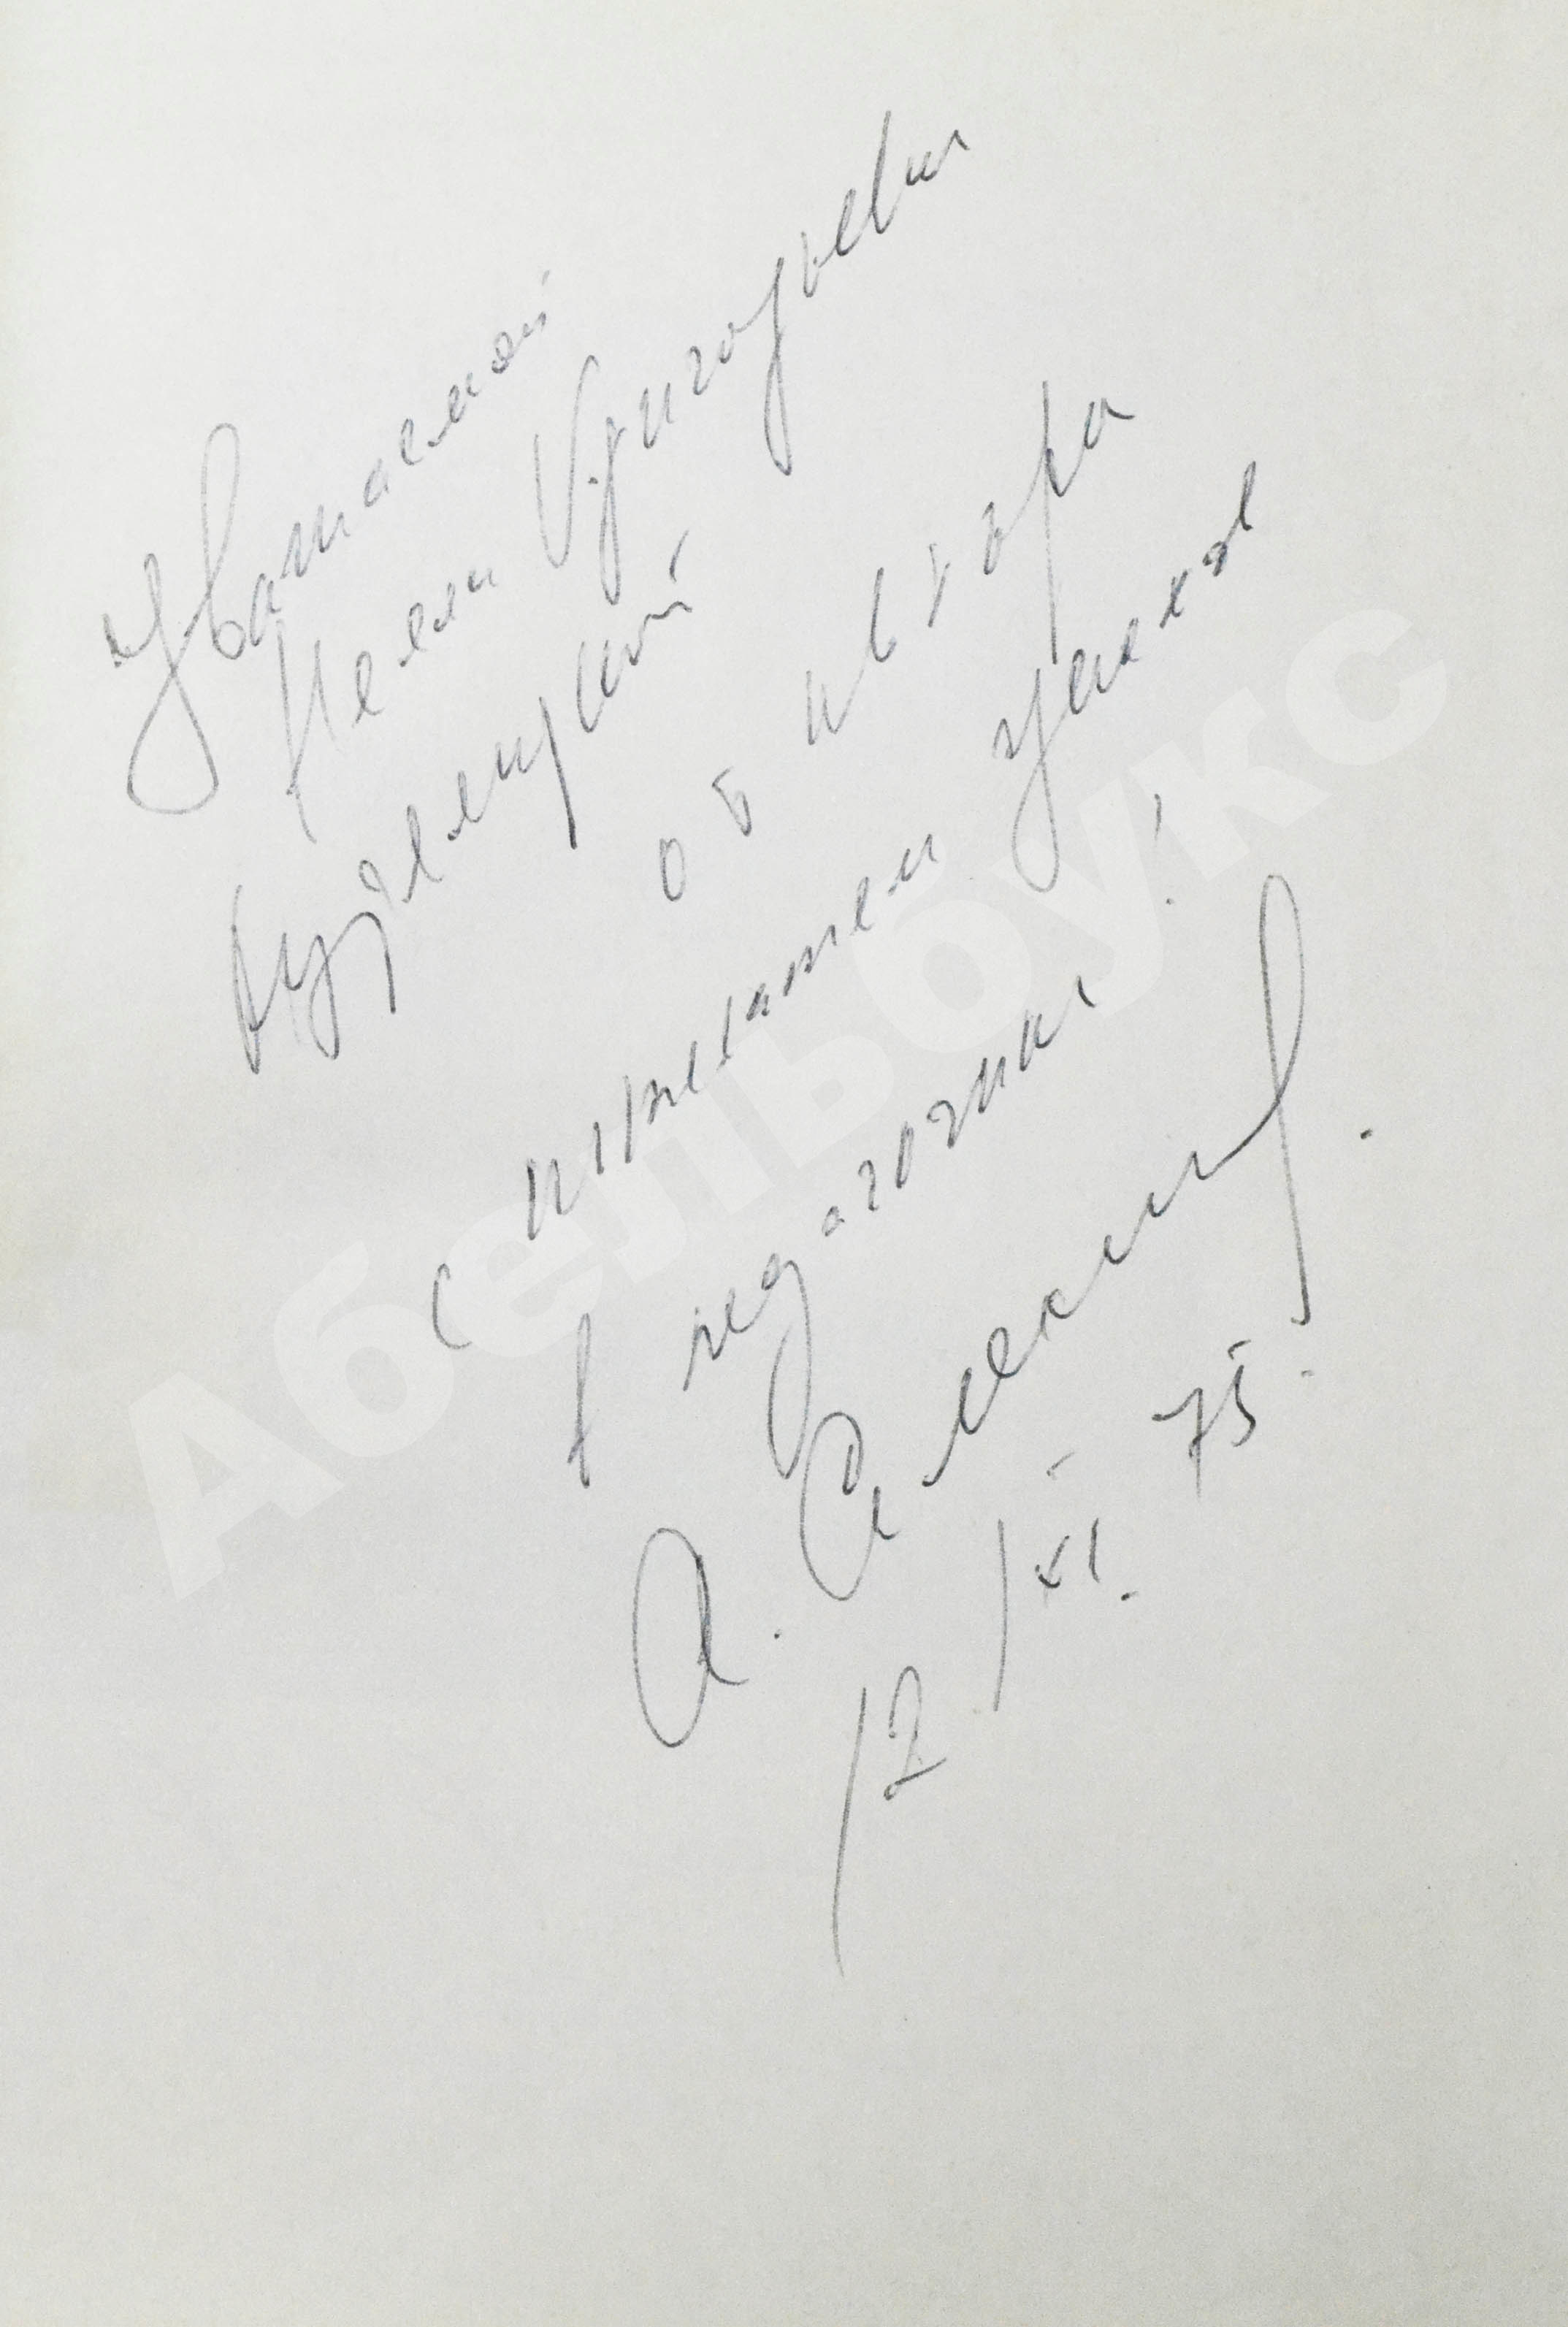 Уважаемой
Нелли Григорьевне
Кузнецкой
от автора
с пожеланием успехов
в педагогике!
А.
12/XI.75.
Абельбукс